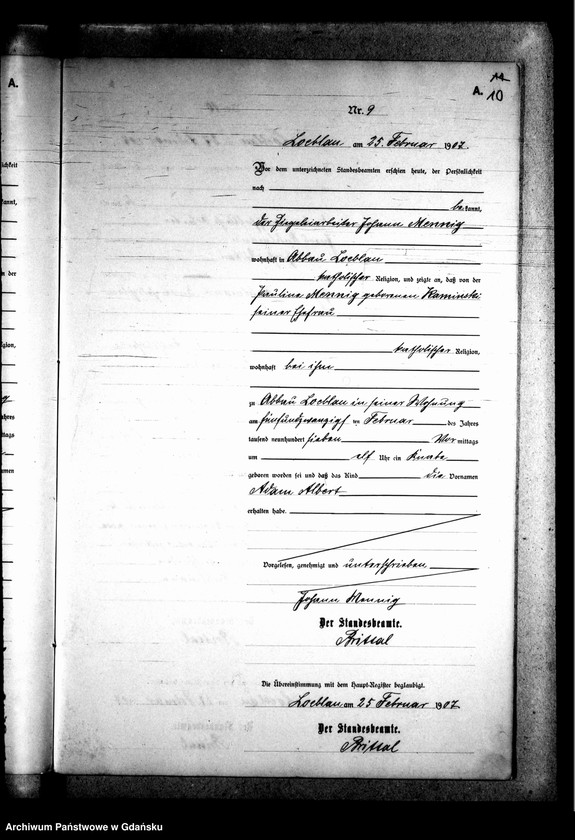 A.
11
A. 10
Nr. 9
Loeblau am 25. Februar 1907.
Vor dem unterzeichneten Standesbeamten erschien heute, der Persönlichkeit
nach
bekannt,
der Ziegeleiarbeiter Johann Mennig
wohnhaft in Abbau Loeblau
katholischer Religion, und zeigte an, daß von der
Pauline Mennig geborenen Kaminski
seiner Ehefrau
katholischer Religion,
wohnhaft bei ihm
zu Abbau Loeblau in seiner Wohnung
am fünfundzwanzigsten Februar des Jahres
tausend neunhundert sieben Vormittags
um elf Uhr ein Knabe
geboren worden sei und daß das Kind die Vornamen
Adam Albert
erhalten habe.
Vorgelesen, genehmigt und unterschrieben
Johann Mennig
Der Standesbeamte.
Die Übereinstimmung mit dem Haupt-Register beglaubigt.
Loeblau am 25 Februar 1907
Der Standesbeamte.
Archiwum Państwowe w Gdańsku